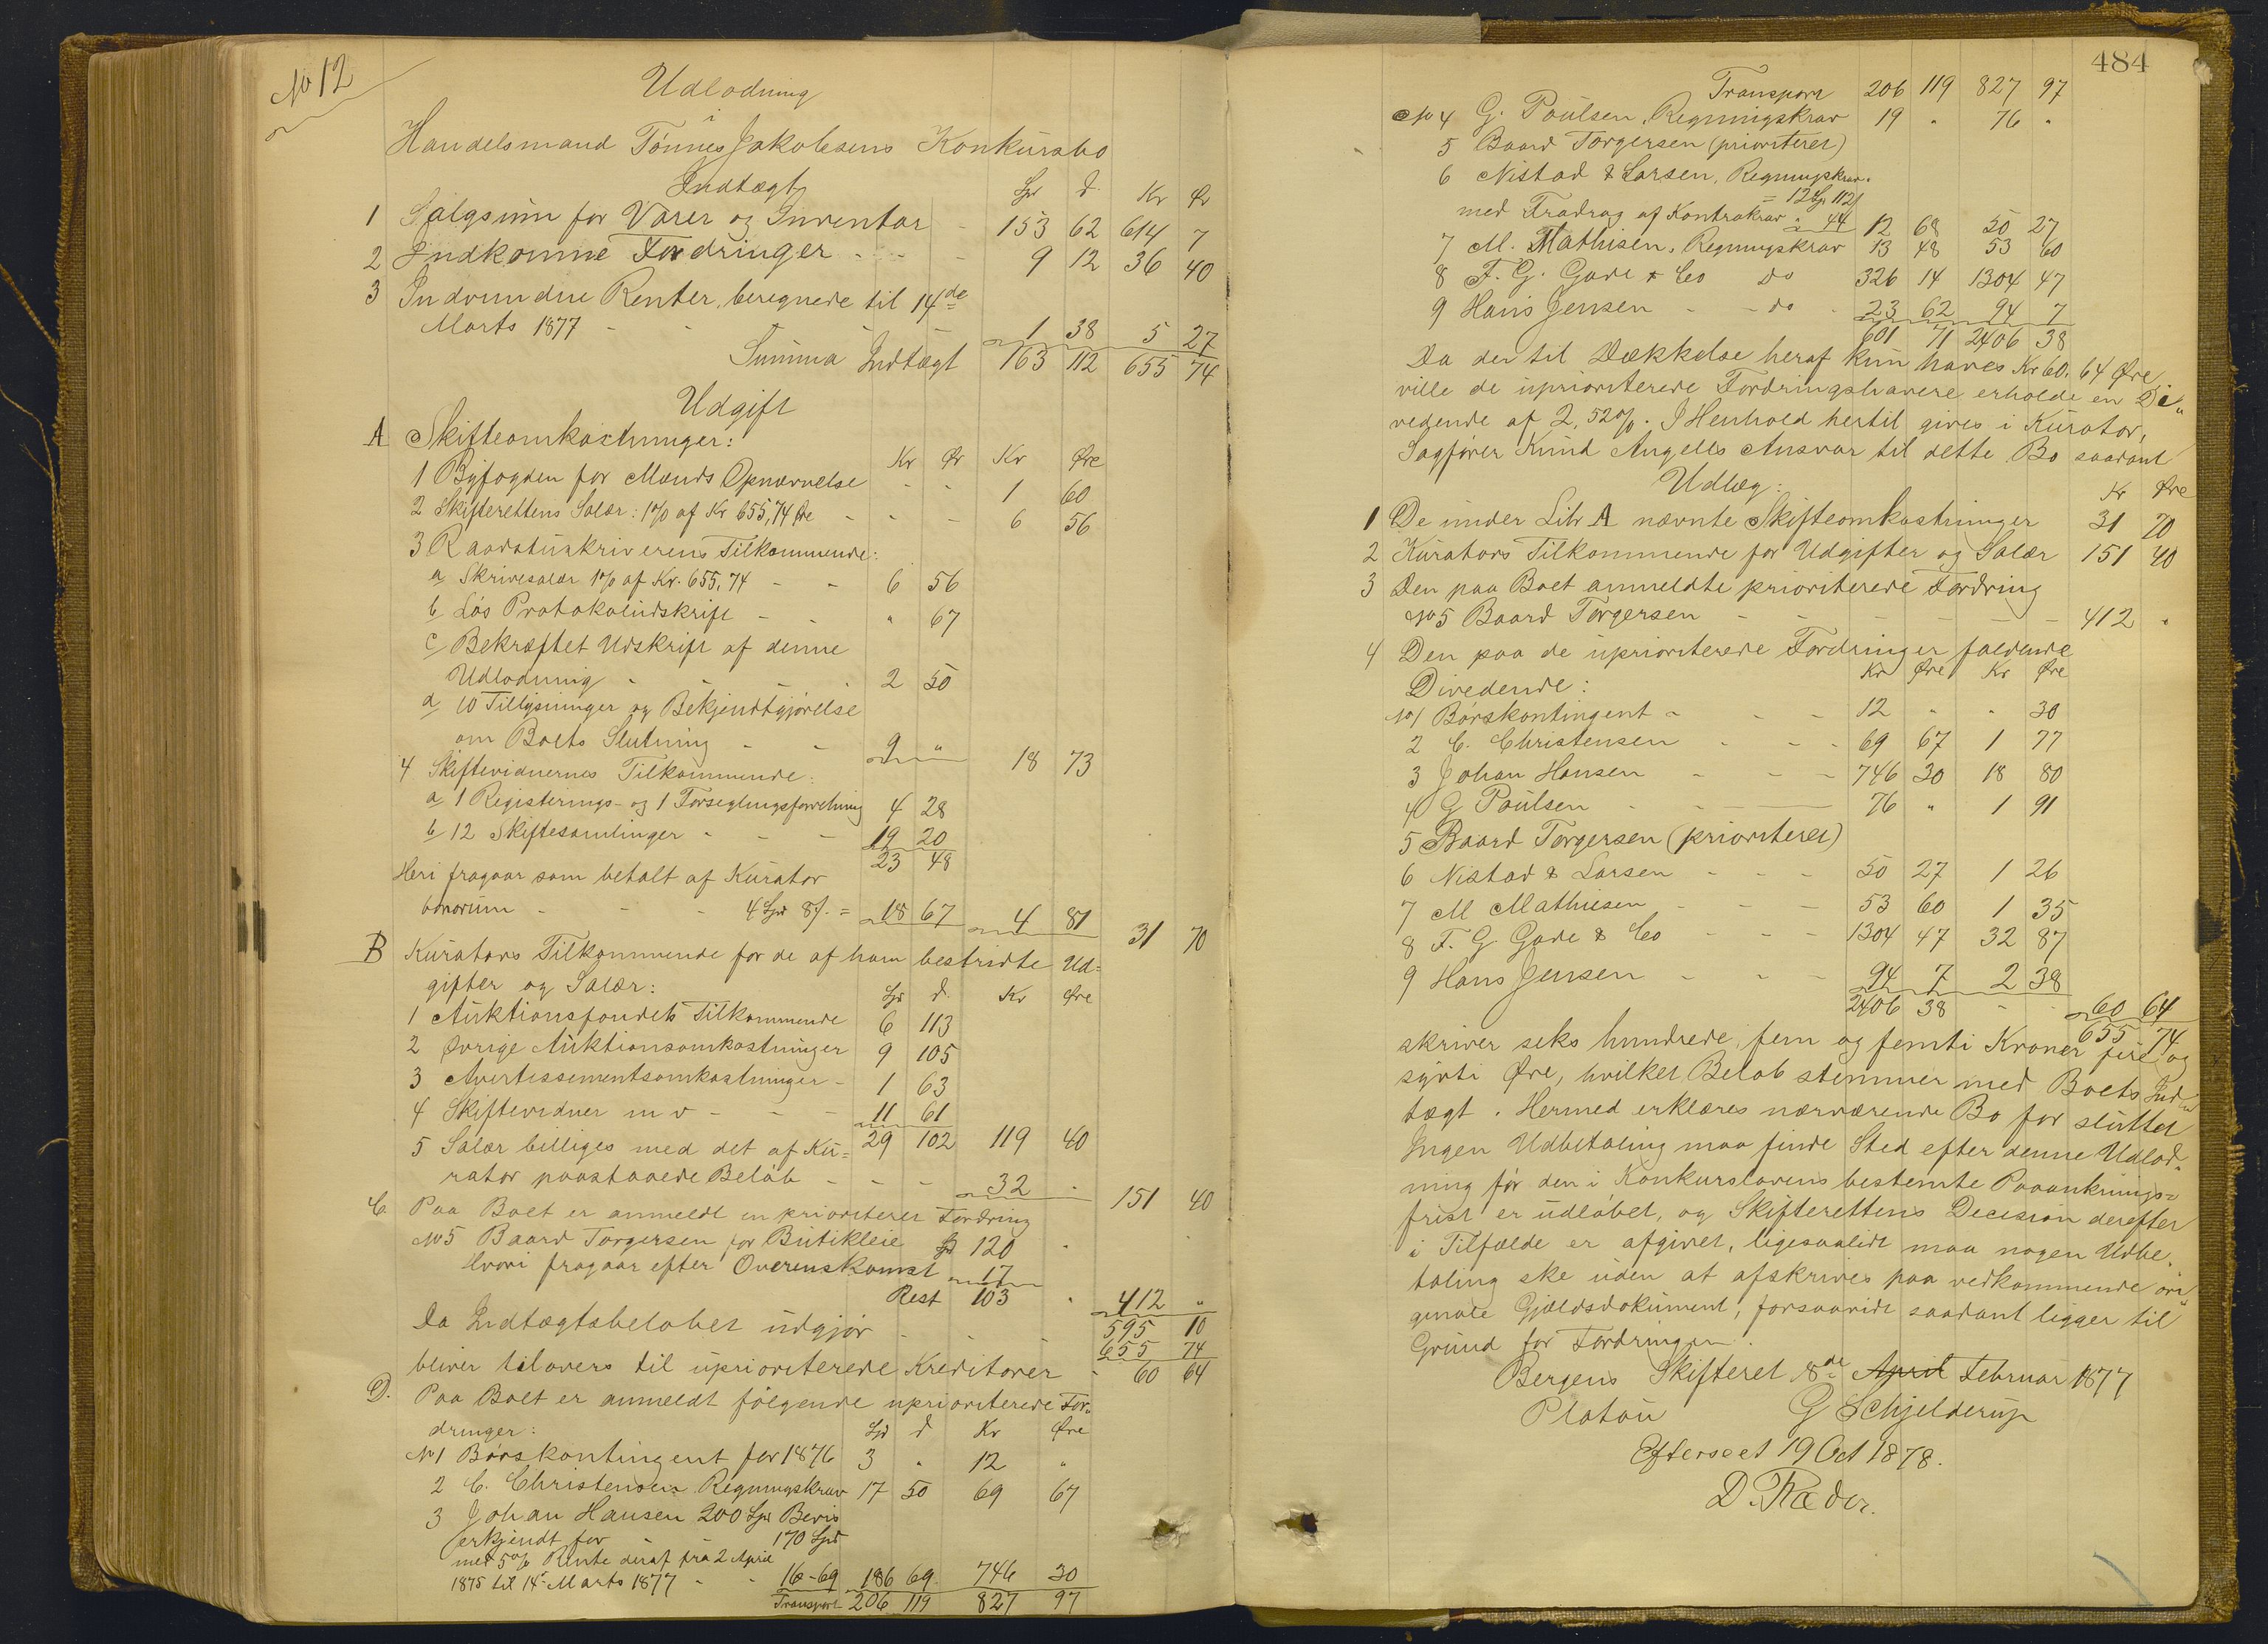 No 12
Udlodning
i
Handelsmand Tönnes Jakobsens Konkursbo
Indtægt Spd d. Kr Ør
1 Salgsum for Varer og Inventar - 153 62 614 7
2 Indkomne Fordringer - - - 9 12 36 40
3 Indvundne Renter, beregnede til 14de
Marts 1877 - - - 1 38 5 27
Summa Indtægt 163 112 655 74
Udgift
A Skifteomkostninger:
Kr Ør Kr Øre
1 Byfogden for Mænds Opnævnelse - - 1 60
2 Skifterettens Salær: 1% af Kr 655,74 Øre - - - 6 56
3 Raadstuskriverens Tilkommende:
a Skrivesalær 1% af Kr. 655,74 - - 6 56
b Løs Protokoludskrift - - " 67
c Bekræftet Udskrift af denne
Udlodning - - - 2 50
d 10 Tillysninger og Bekjendtgjørelse
om Boets Slutning - - 9 " 18 73
4 Skiftevidnernes Tilkommende:
a 1 Registerings- og 1 Forseglingsforretning 4 28
b 12 Skiftesamlinger - - - 19 20
23 48
Heri fragaar som betalt af Kurator
bonorum - - - 4 Spd 8 f. = 18 67 4 81 31 70
B Kurators Tilkommende for de af ham bestridte Ud=
gifter og Salær: Spd d. Kr Øre
1 Auktionsfondets Tilkommende 6 113
2 Øvrige Auktionsomkostninger 9 105
3 Avertissementsomkostninger - 1 63
4 Skiftevidner m v - - - 11 61
29 102 119 40
5 Salær billiges med det af Ku=
rator paastaaede Beløb - - - 32 - 151 40
C. Paa Boet er anmeldt en prioriteret Fordring
No 5 Baard Torgersen for Butikleie Spd 120 -
hvori fragaar efter Overenskomst 17
Rest 103 " 412 "
595 10
Da Indtægtsbeløbet udgjør - - - 655 74
bliver tilovers til uprioriterede Kreditorer - 60 64
D. Paa Boet er anmeldt følgende uprioriterede For„
dringer: Spd d Kr Øre
No 1 Børskontingent for 1876 3 " 12 "
2 C. Christensen Regningskrav 17 50 69 67
3 Johan Hansen 200 Spd Bevis
erkjendt for - 170 Spd
med 5% Rente deraf fra 2 April
1875 til 14de Marts 1877 - - 16-69 186 69 746 30
Transport 206 119 827 97
484
Transport 206 119 827 97
No 4 G. Poulsen, Regningskrav 19 " 76 "
5 Baard Torgersen (prioriteret)
6 Nistad & Larsen, Regningskrav.
= 12 Sp 112 f
med Fradrag af Kontrakrav " 44 12 68 50 27
7 M. Mathisen, Regningskrav 13 48 53 60
8 F. G. Gade & Co do 326 14 1304 47
9 Hans Jensen - - do - 23 62 94 7
601 71 2406 38
Da der til Dækkelse heraf kun haves Kr 60. 64 Øre,
ville de uprioriterede Fordringshavere erholde en Di„
vedende af 2,52%. I Henhold hertil gives i Kurator,
Sagfører Knud Angells Ansvar til dette Bo saadant
Udlæg: Kr Øre
1 De under Litr A nævnte Skifteomkostninger 31 70
2 Kurators Tilkommende for Udgifter og Salær 151 40
3 Den paa Boet anmeldte prioriterede Fordring
No 5 Baard Torgersen - - - - - - 412 "
4 Den paa de uprioriterede Fordringer faldende
Divedende: Kr Øre Kr Øre
No 1 Börskontingent - - - 12 " " 30
2 C. Christensen - - - 69 67 1 77
3 Johan Hansen - - - 746 30 18 80
4 G Poulsen - - - 76 " 1 91
5 Baard Torgersen (prioriteret)
6 Nistad & Larsen - - - 50 27 1 26
7 M Mathiesen - - - 53 60 1 35
8 F. G Gade & Co - - - 1304 47 32 87
9 Hans Jensen - - - 94 7 2 38
2406 38 - - 60 64
655 74
skriver seks hundrede, fem og femti Kroner fire og
sytti Øre, hvilket Beløb stemmer med Boets Ind„
tægt. Hermed erklæres nærværende Bo for sluttet
Ingen Udbetaling maa finde Sted efter denne Udlod„
ning før den i Konkurslovens bestemte Paaanknings=
frist er udløbet, og Skifterettens Decision derefter
i Tilfælde er afgivet, ligesaalidt maa nogen Udbe„
taling ske uden at afskrives paa vedkommende ori„
ginale Gjældsdokument, forsaavidt saadant ligger til
Grund for Fordringen.
Bergens Skifteret 8de April Februar 1877
Platou G Schjelderup
Efterseet 19 Oct 1878.
D. Ræder.